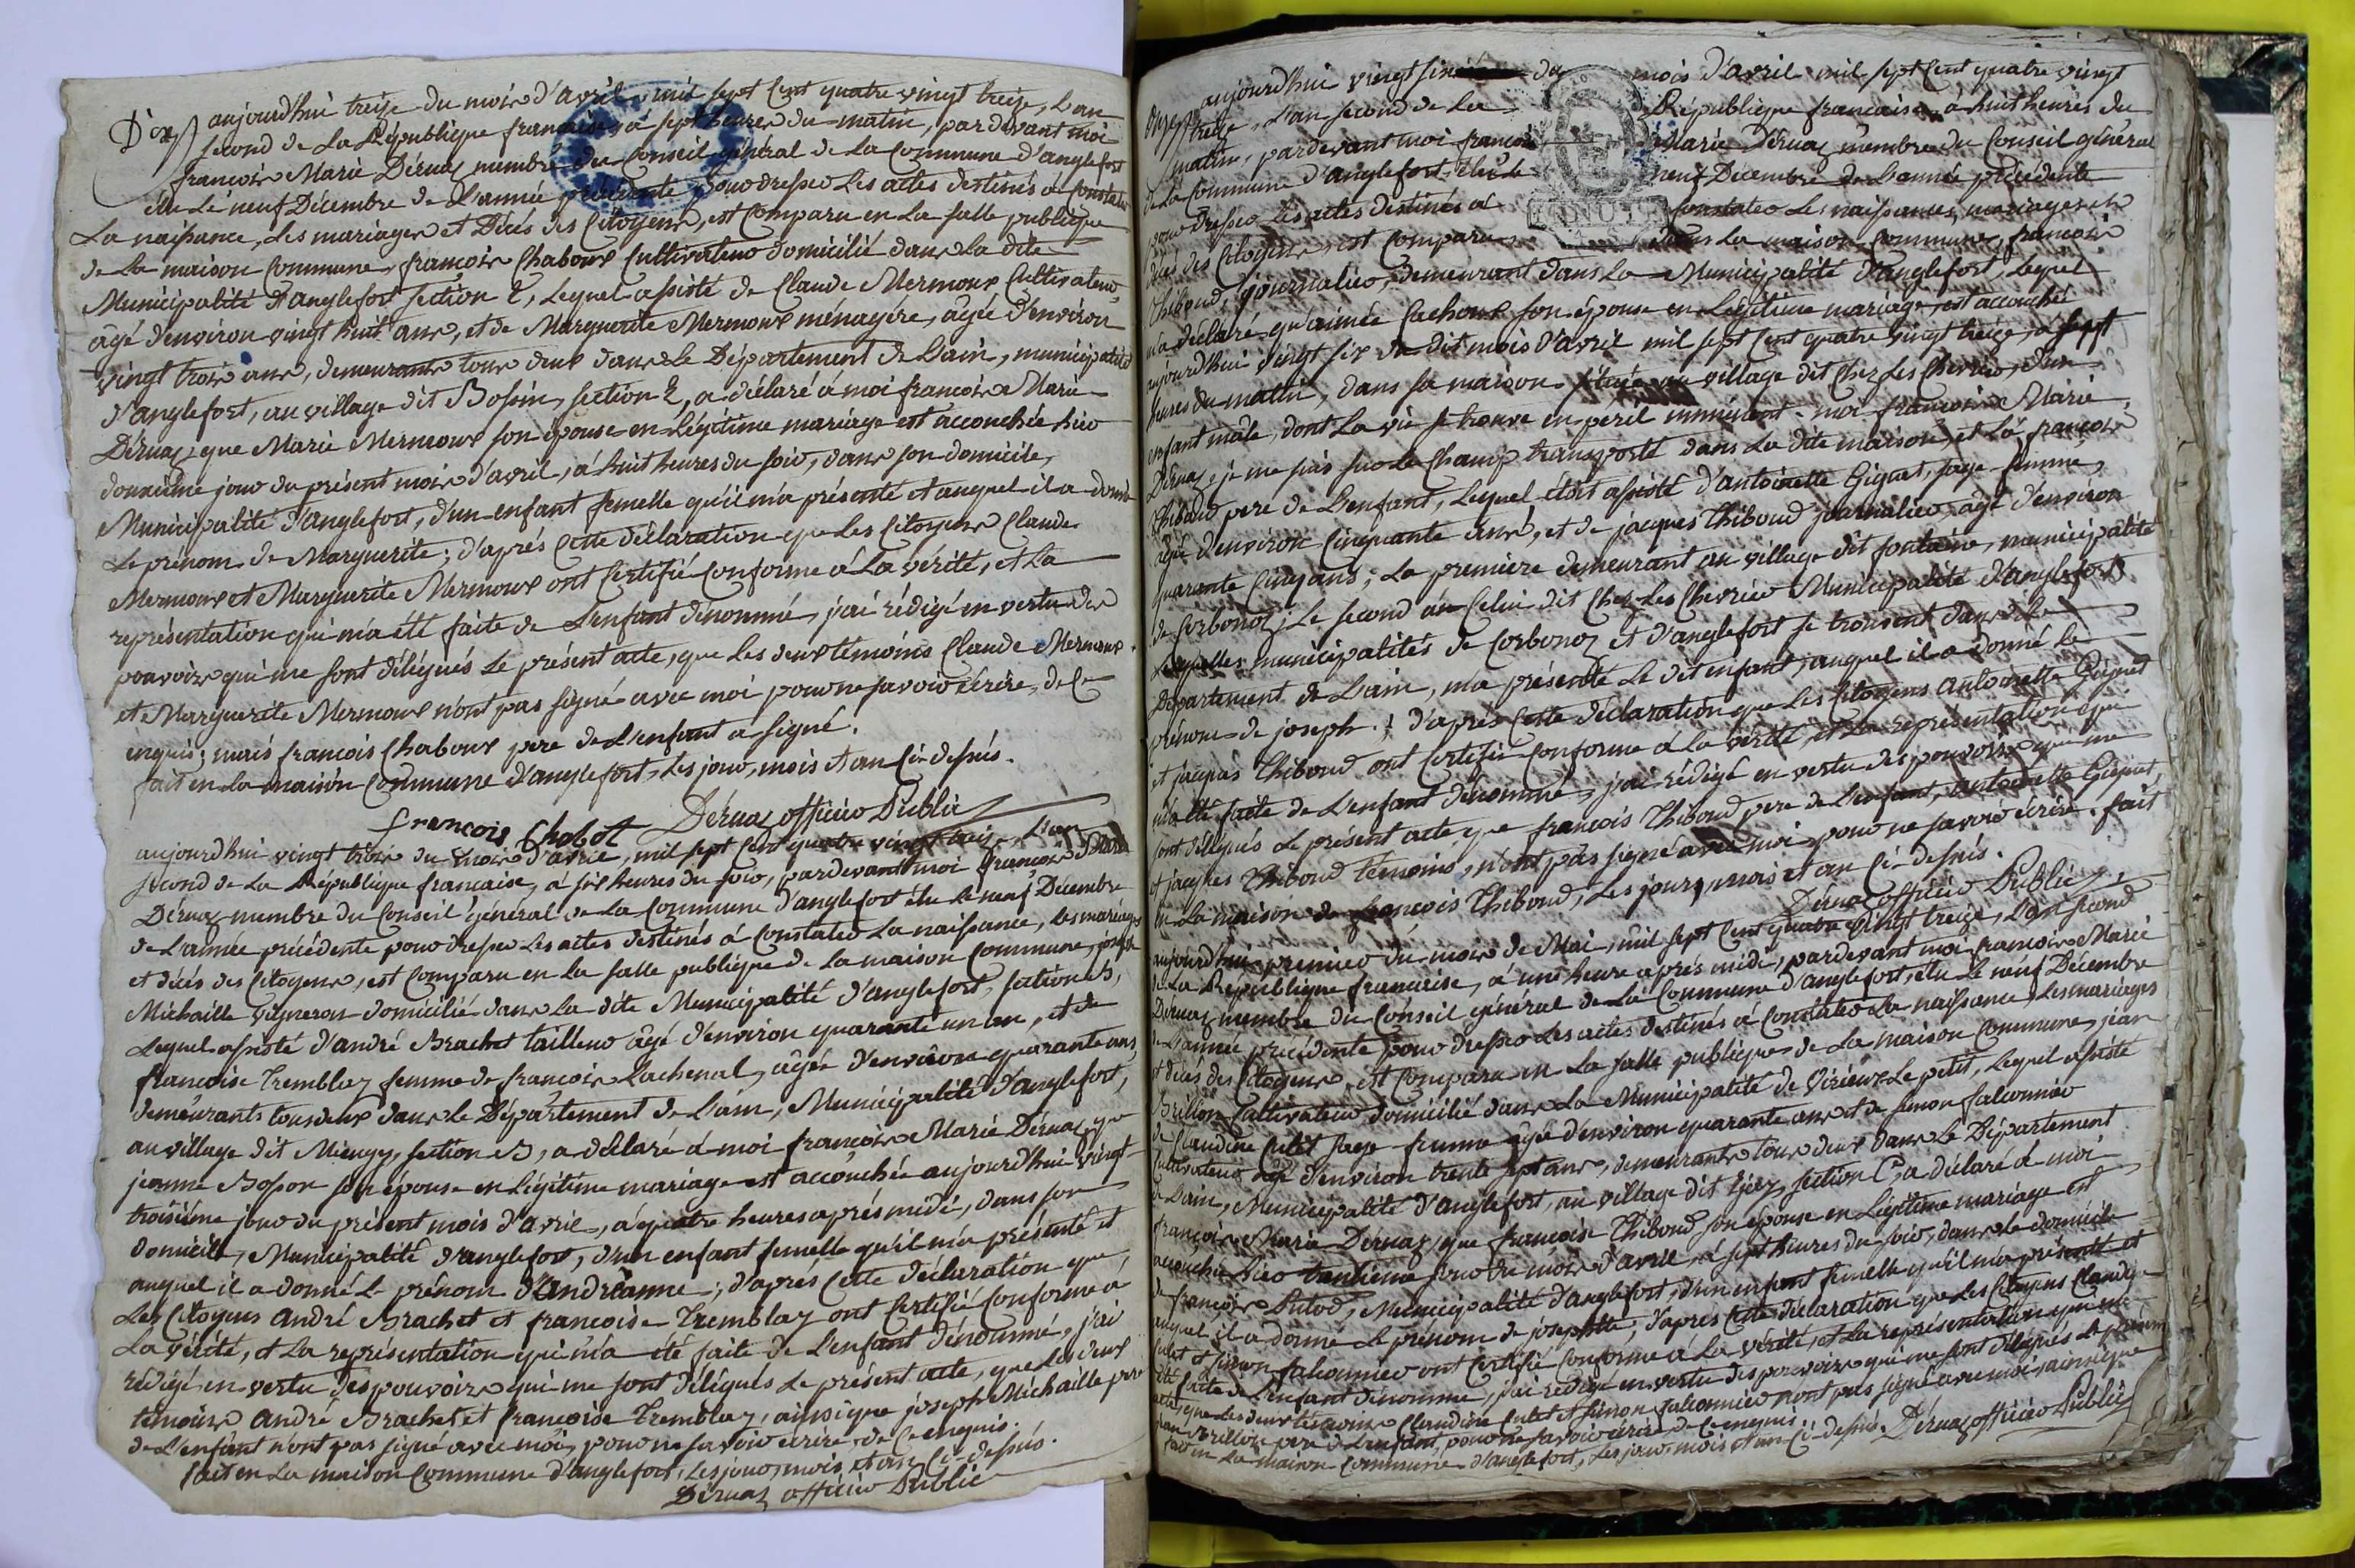 Dix aujourd'hui treize du mois d'avril mil sept cent quatre vingt treize, L'an
second de La République française, à sept heures du matin, par devant moi
françois Marie Dérnaz membre du Conseil général de La Commune d'anglefort
élu Le neuf Décembre de L'année précédente pour dresser Les actes destinés à Constater
La naissance, Les mariages et Décés des Citoyens, est Comparu en La salle publique
de La maison Commune, françois Chaboux Cultivateur domicilié dans La dite
Municipalité d'anglefort section E, Lequel assisté de Claude Mermoux Cultivateur
âgé d'environ vingt huit ans, et de Marguerite Mermoux ménagère, âgée d'environ
vingt trois ans, demeurants tous deux dans Le Département de L'ain, municipalité
d'anglefort, au village dit Bossin, section E, a déclaré à moi françois Marie
Dérnaz, que Marie Mermoux son épouse en Légitime mariage est accouchée hier
douzième jour du présent mois d'avril, à huit heures du soir, dans son domicile,
Municipalité d'anglefort, d'un enfant femelle qu'il m'a présenté et auquel il a donné
Le prénom de Marguerite; d'aprés cette déclaration que Les Citoyens Claude
Mermoux et Marguerite Mermoux ont Certifié Conforme à La vérité, et La
représentation qui m'a été faite de L'enfant dénommé, j'ai rédigé en vertu des
pouvoirs qui me sont délégués Le présent acte, que Les deux témoins Claude Mermoux
et Marguerite Mermoux n'ont pas signé avec moi pour ne savoir écrire, de Ce
enquis; mais françois Chaboux pere de L'enfant a signé.
fait en La maison Commune d'anglefort, Les jour, mois et an Ci-dessus.
francois Chobot Dérnaz officier Public
aujourd'hui vingt trois du mois d'avril, mil sept Cent quatre vingt treize, L'an
second de La République française, à six heures du soir, pardevant moi françois Marie
Dérnaz membre du Conseil général de La Commune d'anglefort élu Le neuf Décembre
de L'année précédente pour dresser Les actes destinés à Constater La naissance, Les mariages
et décés des Citoyens, est Comparu en La salle publique de La maison Commune, joseph
Michaille vigneron domicilié dans La dite Municipalité d'anglefort, section B,
Lequel assisté d'andré Brachet tailleur âgé d'environ quarante un an, et de
françoise Tremblay femme de françois Lachenal, âgée d'environ quarante ans,
demeurants tous deux dans Le Département de L'ain, Municipalité d'anglefort,
au village dit Mieugy, section B, a déclaré à moi françois Marie Dérnaz, que
jeanne Bosson son épouse en Légitime mariage est accouchée aujourd'hui vingt
troisième jour du présent mois d'avril, à quatre heures aprés midi, dans son
domicile, Municipalité d'anglefort, d'un enfant femelle qu'il m'a présenté et
auquel il a donné Le prénom d'Andréanne; d'aprés Cette déclaration que
Les Citoyens andré Brachet et françoise Tremblay ont Certifié Conforme à
La vérité, et La représentation qui m'a été faite de L'enfant dénommé, j'ai
rédigé, en vertu des pouvoirs qui me sont délégués Le présent acte, que Les deux
témoins andré Brachet et françoise Tremblay, ainsi que joseph Michaille pere
de L'enfant n'ont pas signé avec moi, pour ne savoir écrire, de Ce enquis.
fait en La maison Commune d'anglefort, Les jour, mois et an Ci-dessus.
Dérnaz officier Public
Onze aujourd'hui vingt six du mois d'avril mil sept Cent quatre vingt
treize, L'an second de La République française, à huit heures du
matin, pardevant moi françois Marie Dérnaz membre du Conseil général
de La Commune d'anglefort élu Le neuf Décembre de L'année précédente
pour dresser Les actes destinés à Constater Les naissances, mariages et
décés des Citoyens, est Comparu dans La maison Commune, françois
Thiboud, journalier, demeurant dans La Municipalité d'anglefort, Lequel
m'a déclaré, qu'aimée Cachoux son épouse en Légitime mariage, est accouchée
aujourd'hui vingt six du dit mois d'avril mil sept Cent quatre vingt treize, à sept
heures du matin, dans sa maison située au village dit Chez Les Chevrier, d'un
enfant mâle, dont La vie se trouve en peril imminent. moi françois Marie
Dérnaz, je me suis sur Le Champ transporté dans La dite maison, et Là françois
Thiboud pere de L'enfant, Lequel étoit assisté d'antoinette Gignet, sage-femme,
âgée d'environ Cinquante ans, et de jacques Thiboud journalier âgé d'environ
quarante Cinq ans; La premiere demeurant au village dit fontaine, municipalité
de Corbonoz, Le second au Celui dit Chez Les Chevrier Municipalité d'anglefort,
Lesquelles municipalités de Corbonoz et d'anglefort se trouvent dans Le
Département de L'ain, m'a présenté Le dit enfant, auquel il a donné Le
prénom de joseph; d'aprés Cette déclaration que Les Citoyens antoinette Gignet
et jacques Thiboud ont Certifié Conforme à La vérité, et La représentation qui
m'a été faite de L'enfant dénommé, j'ai rédigé en vertu des pouvoirs qui me
sont délégués Le présent acte, que françois Thiboud pere de L'enfant, antoinette Gignet,
et jacques Thiboud témoins, n'ont pas signé avec moi pour ne savoir écrire. fait
en La maison de françois Thiboud, Les jours, mois et an Ci-dessus.
Dérnaz officier Public
aujourd'hui premier du mois de Mai, mil sept Cent quatre vingt treize, L'an second
de La République française, à une heure aprés midi, pardevant moi françois Marie
Dérnaz membre du Conseil général de La Commune d'anglefort, élu Le neuf Décembre
de L'année précédente pour dresser Les actes destinés à Constater La naissance, Les mariages
et décés des Citoyens, est Comparu en La salle publique de La maison Commune, jean
Brillon Cultivateur domicilié dans La Municipalité de Virieux Le petit, Lequel assisté
de Claudine Culet sage-femme âgée d'environ quarante ans et de simon falconnier
Cultivateur âgé d'environ trente sept ans, demeurants tous deux dans Le Département
de L'ain, Municipalité d'anglefort, au village dit section C, a déclaré à moi
françois Marie Dérnaz, que françoise Thiboud son épouse en Légitime mariage est
accouchée hier trentième jour du mois d'avril, à sept heures du soir, dans Le domicile
de françois Putod, Municipalité d'anglefort, d'un enfant femelle qu'il m'a présenté et
auquel il a donné Le prénom de josephte, d'aprés Cette déclaration que Les Citoyens Claudine
Culet et simon falconnier ont Certifié Conforme à La vérité, et La représentation qui m'a
été faite de L'enfant dénommé, j'ai rédigé en vertu des pouvoirs qui me sont délégués Le présent
acte, que Les deux témoins Claudine Culet et simon falconnier n'ont pas signé avec moi, ainsi que
jean Brillon pere de L'enfant, pour ne savoir écrire de Ce enquis.
fait en La maison Commune d'anglefort, Les jour, mois et an Ci-dessus. Dérnaz officier Public